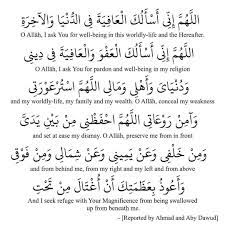 اللَّهُمَّ إِنِّي أَسْأَلُكَ الْعَافِيَةَ فِي الدُّنْيَا وَالْآخِرَةِ
O Allāh, I ask You for well-being in this worldly-life and the Hereafter.
اللَّهُمَّ إِنِّي أَسْأَلُكَ الْعَفْوَ وَالْعَافِيَةَ فِي دِينِي
O Allāh, I ask You for pardon and well-being in my religion
وَدُنْيَايَ وَأَهْلِي وَمَالِي اللَّهُمَّ اسْتُرْ عَوْرَتِي
and my worldly-life, my family and my wealth. O Allāh, conceal my weakness
وَآمِنْ رَوْعَاتِي اللَّهُمَّ احْفَظْنِي مِنْ بَيْنِ يَدَيَّ
and set at ease my dismay. O Allāh, preserve me from in front
وَمِنْ خَلْفِي وَعَنْ يَمِينِي وَعَنْ شِمَالِي وَمِنْ فَوْقِي
and from behind me, from my right and my left and from above
وَأَعُوذُ بِعَظَمَتِكَ أَنْ أُغْتَالَ مِنْ تَحْتِي
And I seek refuge with Your Magnificence from being swallowed
up from beneath me.
- [Reported by Ahmad and Aby Dawud]